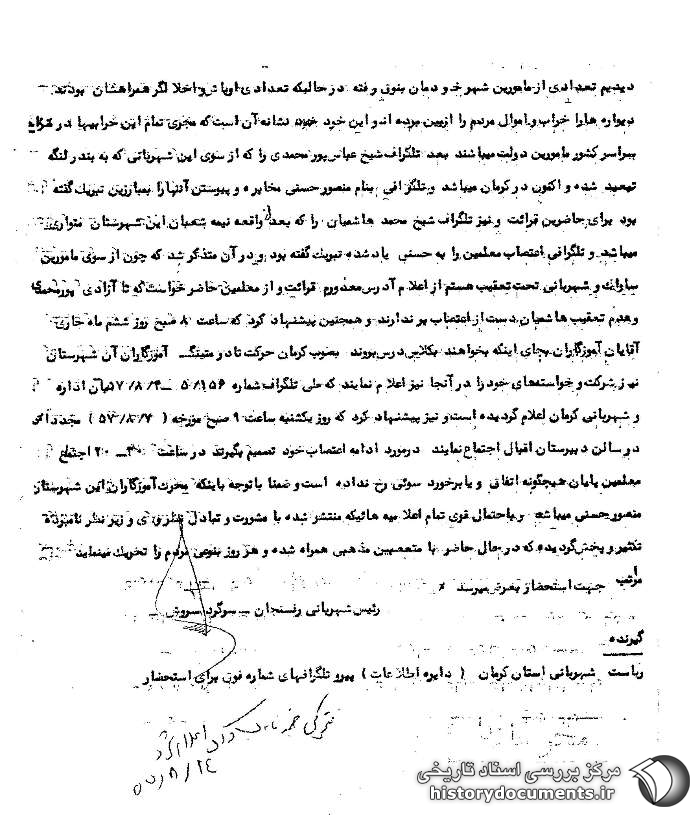 دیدیم تعدادی از مامورین شهر خود و دمان بنوق رفته در حالیکه تعدادی اوباش و اخلالگر همراهشان بودند
دیواره ها را خراب و اموال مردم را ازبین برده اند و این خود نشانه آن است که مجری تمام این خرابیها در
سراسر کشور مامورین دولت میباشند بعد تلگراف شیخ عباس پور محمدی را که از سوی این شهربانی که به بندر لنگه
تبعید شده و اکنون در کرمان میباشد و تلگرافی بنام منصور حسنی مخابره و پیوستن آنها را بمبارزین تبریک گفته
بود برای حاضرین قرائت و نیز تلگراف شیخ محمد هاشمیان را که بعد از واقعه نیمه شعبان این شهرستان متواری
میباشد و تلگرافی اعتصاب معلمین را به حسنی یاد شده تبریک گفته بود و در آن متذکر شد که چون از سوی مامورین
ساواک و شهربانی تحت تعقیب هستم از اعلام آدرس معذورم قرائت و از معلمین حاضر خواست که تا آزادی پور محمدی
وعدم تعقیب هاشمیان دست از اعتصاب بر ندارند و همچنین پیشنهاد کرد که ساعت ۸ صبح روز ششم ماه جاری
آقایان آموزگاران بجای اینکه بخواهند بکلاس درس بروند بصوب کرمان حرکت تا در متینگ آموزگاران آن شهرستان
نیز شرکت و خواسته های خود را در آنجا نیز اعلام نمایند که طی تلگراف شماره ۵/۱۵۶ – ۵۷/۸/۴ بآن اداره
و شهربانی کرمان اعلام گردیده است و نیز پیشنهاد کرد که روز یکشنبه ساعت ۹ صبح مورخه ( ۵۷/۸/۷ ) مجددا
در سالن دبیرستان اقبال اجتماع نمایند درمورد ادامه اعتصاب خود تصمیم بگیرند در ساعت اجتماع
معلمین پایان هیچگونه اتفاق و یا برخورد سوئی رخ نداده است و ضمنا با توجه باینکه محرک آموزگاران این شهرستان
منصور حسنی میباشد و باحتمال قوی تمام اعلامیه هائیکه منتشر شده با مشورت و تبادل نظر وی و زیر نظر نامبرده
تکثیر و پخش گردیده که در حال حاضر با متعصبین مذهبی همراه شده و هر روز بنوعی مردم را تحریک مینماید
مراتب جهت استحضار بعرض میرسد *
رئیس شهربانی رفسنجان – سرگرد سروش
گیرنده
ریاست شهربانی استان کرمان ( دایره اطلاعات ) پیرو تلگرافهای شماره فوق برای استحضار
اعلام شد
۵۷/۸/۱۴
مرکز بررسی اسناد تاریخی
historydocuments.ir